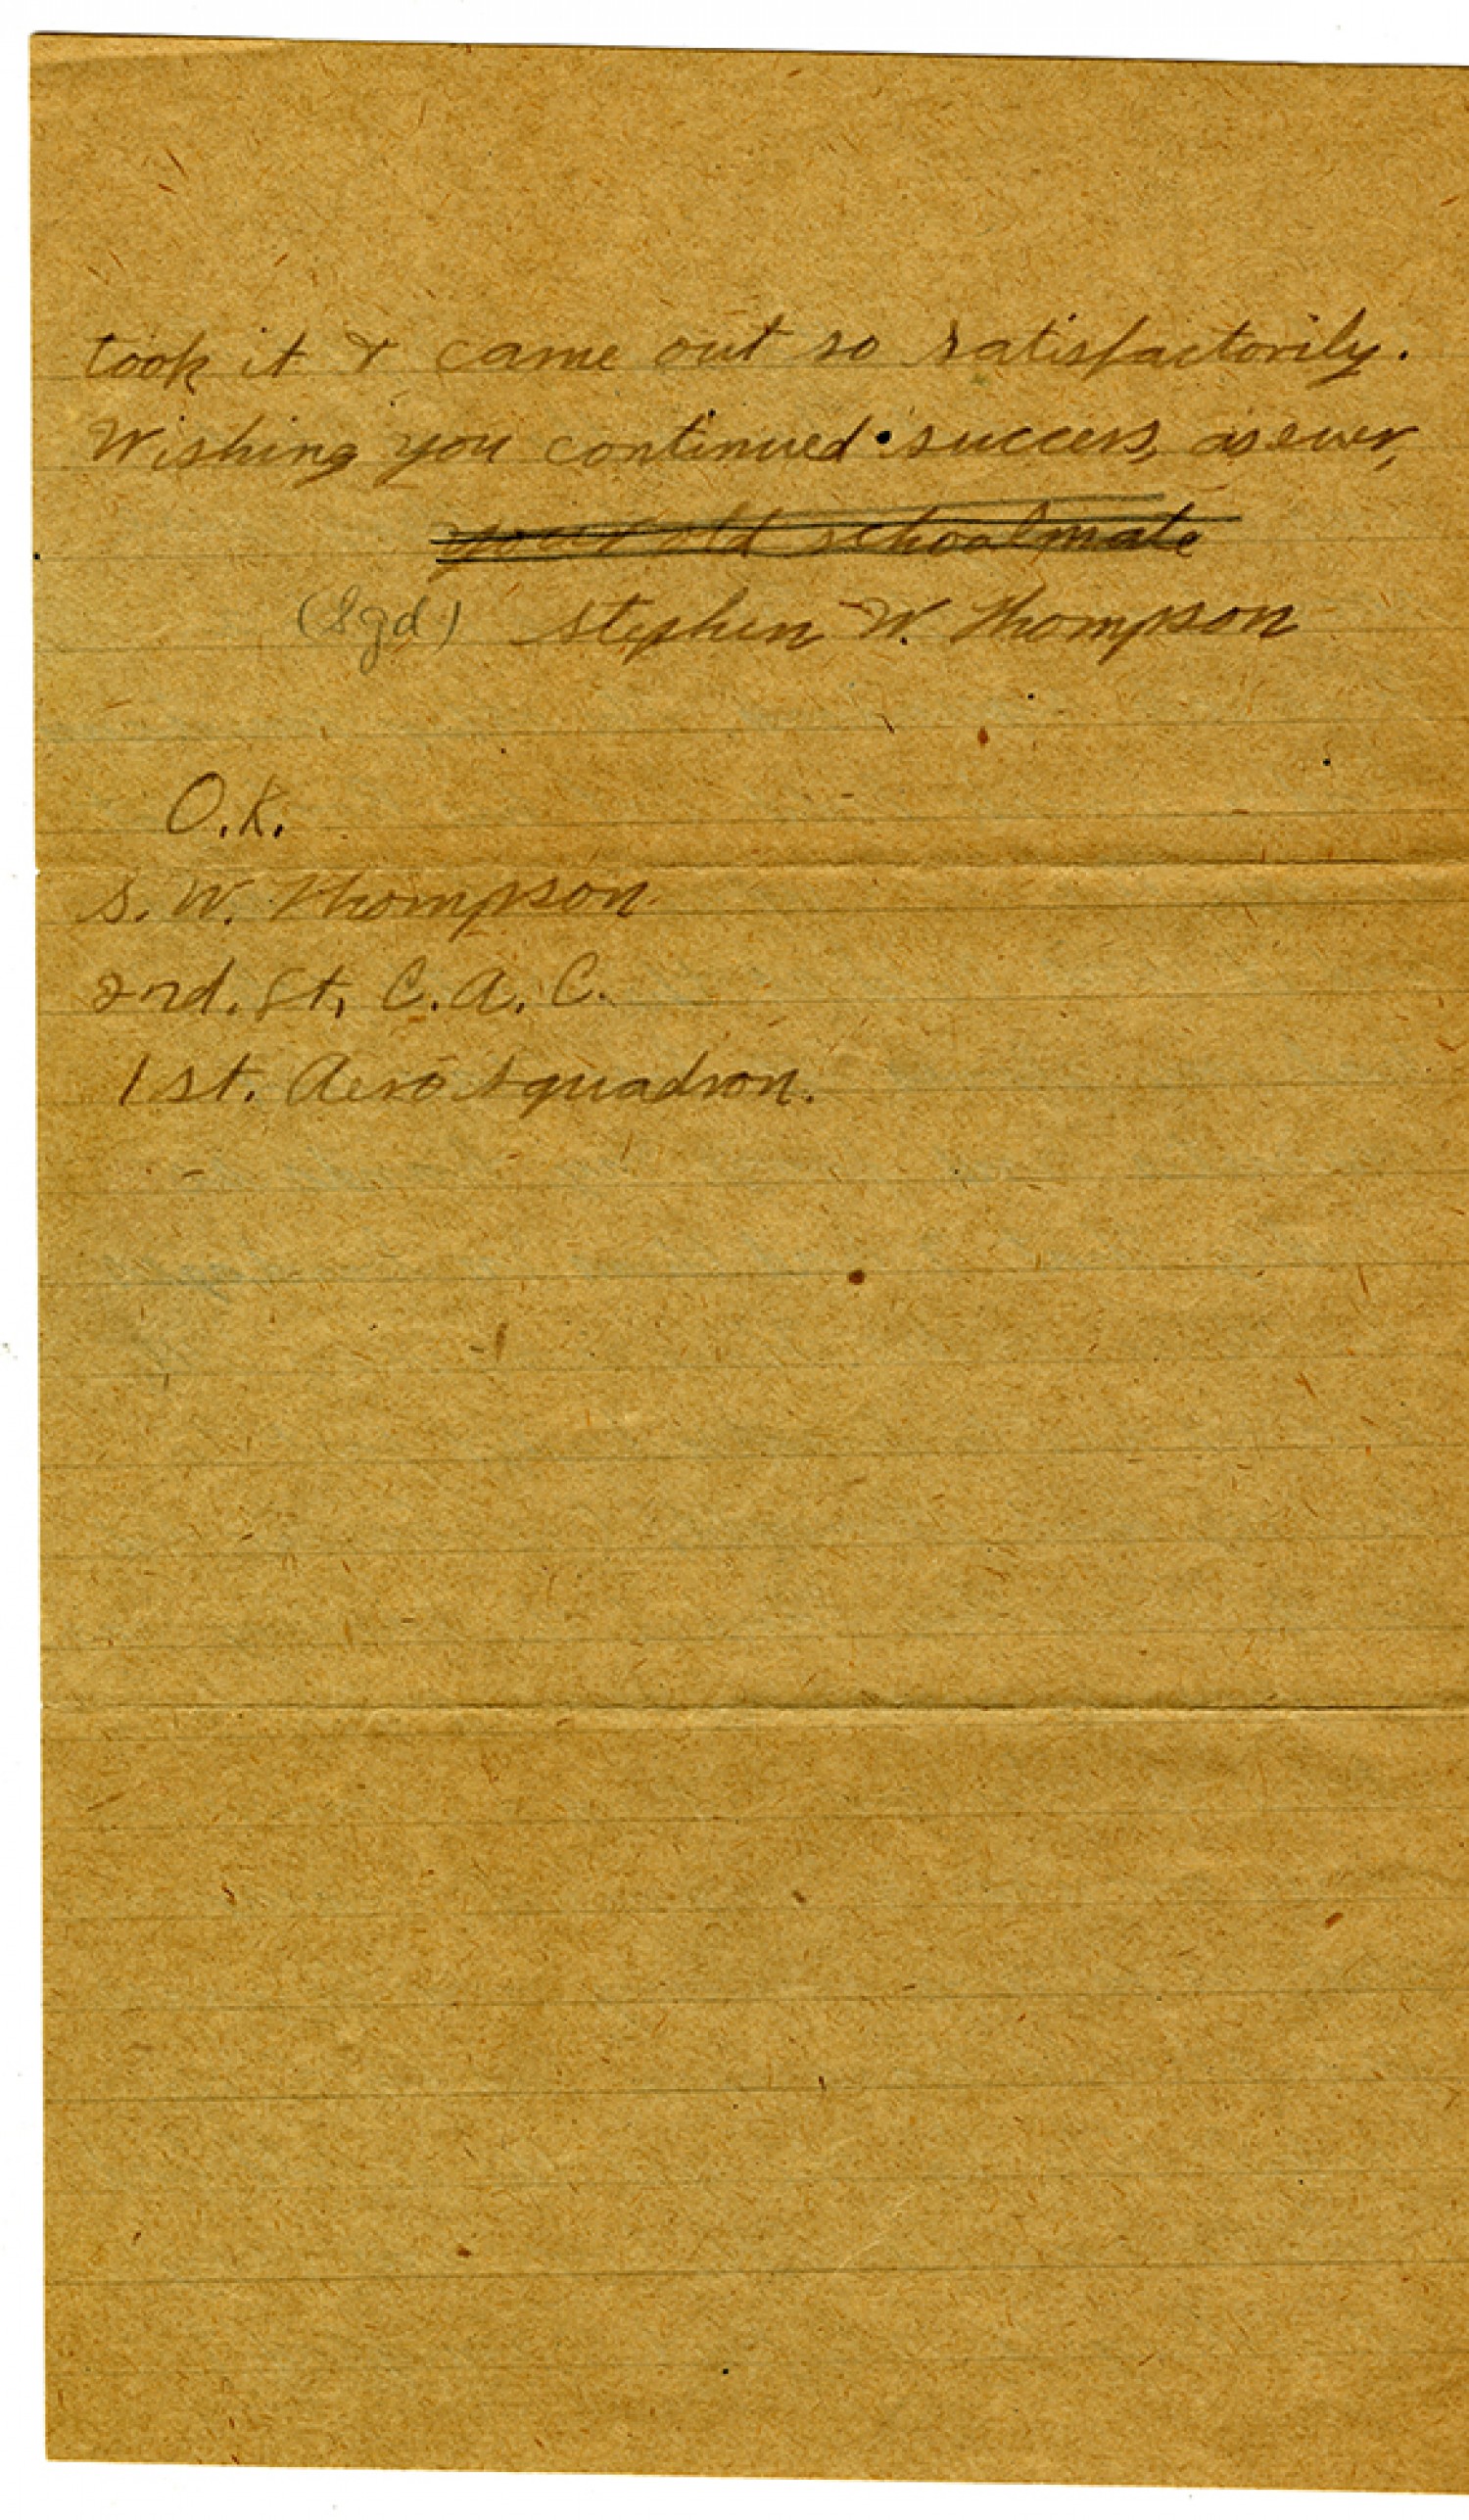 took it & came out so satisfactorily.
Wishing you continued success, as ever,
your old schoolmate
(Sgd) Stephen W. Thompson
O.K.
S. W. Thompson
2nd. Lt. C. A. C.
1st. Aero Squadron.